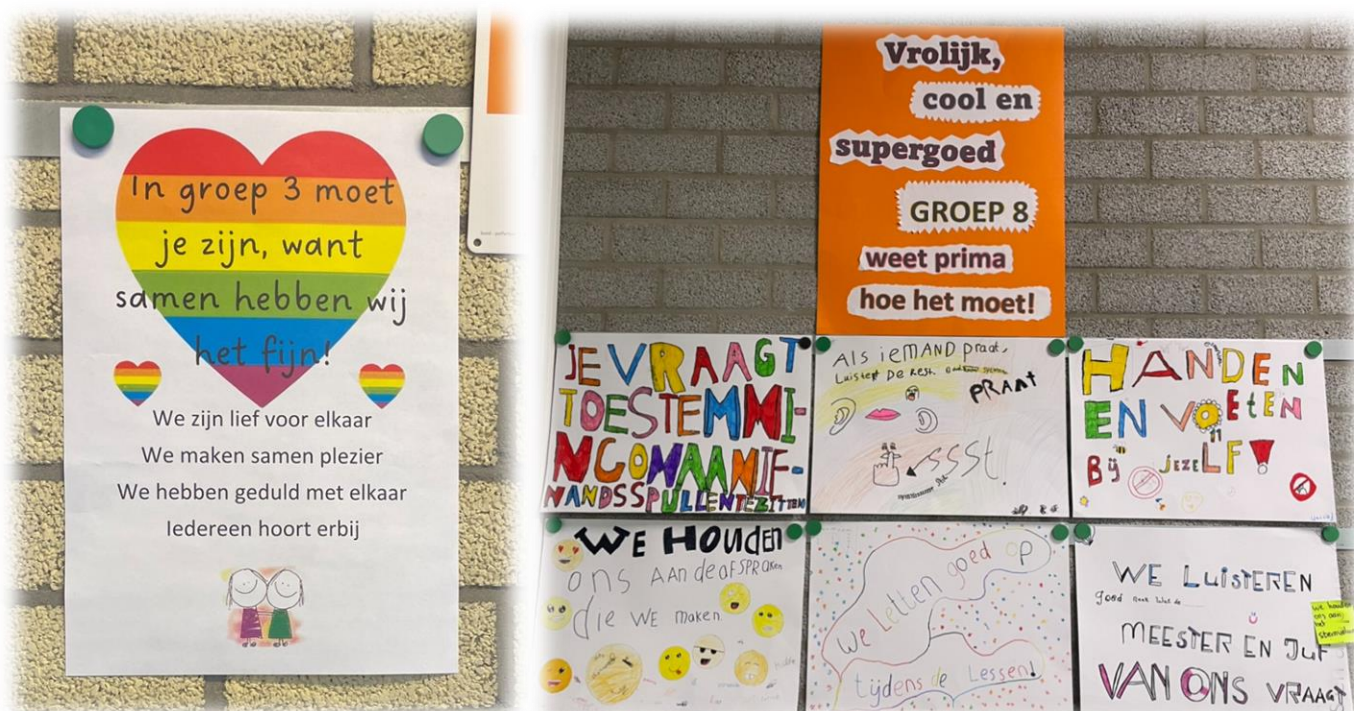 In groep 3 moet
je zijn, want
samen hebben wij
het fijn!
We zijn lief voor elkaar
We maken samen plezier
We hebben geduld met elkaar
Iedereen hoort erbij
Vrolijk,
cool en
supergoed
GROEP 8
weet prima
hoe het moet!
JE VRAAGT
TOESTEMMI-
NG OM AAN IE-
MANDS SPULLEN TE ZITTEN
Als iEMAND praat,
Luistert De Rest.
PRAAT
SSSt.
HANDEN
EN VOETEN
Bij jezELF!
WE HOUDEN
ons AAN de AFSPRAKEN
die WE maken
We Letten goed op
tijdens de Lessen!
WE LUiSTEREN
goed naar wat de
MEESTER EN JUF
VAN ONS VRAAGT
We houden
ons aan
het